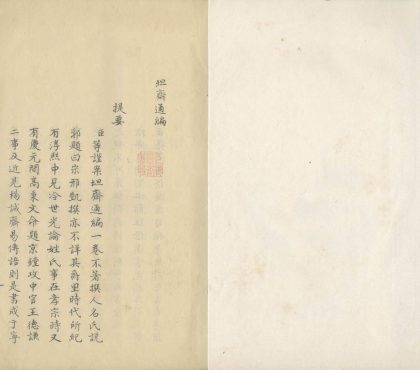 坦齋通編
提要
臣等謹案坦齋通編一卷不著撰人名氏説
郛題曰宋邢凱撰亦不詳其爵里時代所紀
有淳熙中見冷世光論姓氏事在孝宗時又
有慶元間高東文命題京鏜攻中官王德謙
二事及近見楊誠齋易傳語則是書成于寧